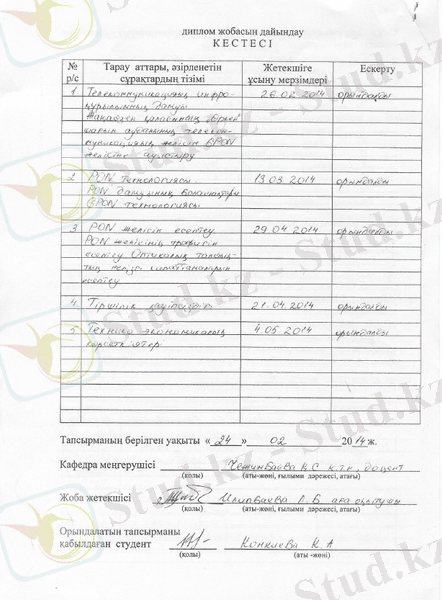 диплом жобасын дайындау
КЕСТЕСІ
№ р/с
Тарау аттары, әзірленетін сұрақтардың тізімі
Жетекшіге ұсыну мерзімдері
Ескерту
1 Телекоммуникациялық инфра- 26.02 2014 орындалды
құрылымның дамуы
желісін GPON
желісіне ауыстыру
2 PON технологиясы 13.03.2014 орындалды
PON дамуының болашақтары
GPON технологиясы
3 PON желісін есептеу 29.04 2014 орындалды
PON желісінің трафигін
есептеу Оптикалық талшық-
тың негізгі сипаттамаларын
есептеу
4 Тіршілік қауіпсіздігі 21.04.2014 орындалды
5 Технико экономикалық 4.05 2014 орындалды
көрсеткіштер
Тапсырманың берілген уакыты « 24 » 02 2014 ж.
Кафедра меңгерушісі Чежимбаева К.С к.т.н, доцент
(қолы) (аты-жөні, ғылыми дәрежесі, атағы)
Жоба жетекшісі Л.Б аға оқытушы
(қолы) (аты-жөні, ғылыми дәрежесі, атағы)
Орындалатын тапсырманы
қабылдаған студент К.А
(қолы) (аты -жөні)
Stud.kz - Stud.kz